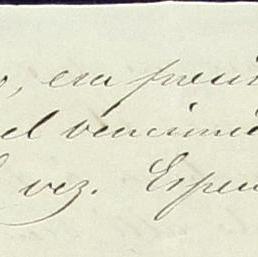 , era preci
el vencimie
vez. Esper